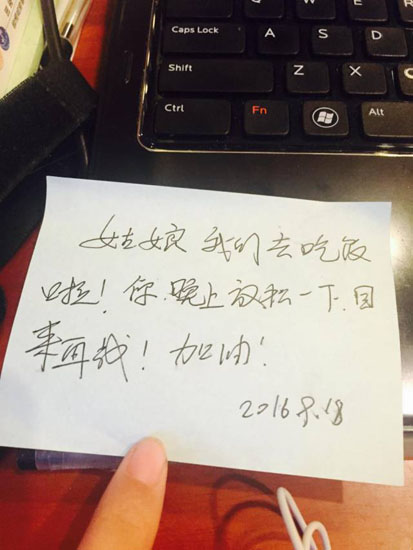 Caps Lock A S D
Shift Z X
Ctrl Fn Alt
姑娘 我们去吃饭
啦！你晚上放松一下.回
来再战！加油！
2016.8.18